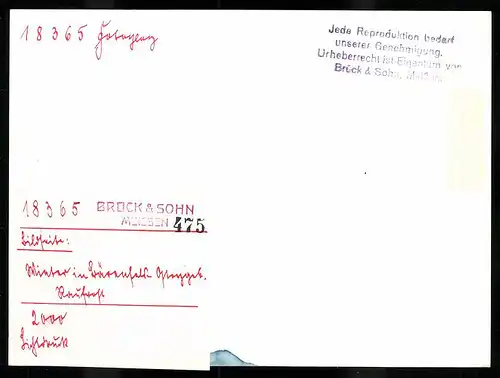 18365
Jede Reproduktion bedarf
unserer Genehmigung.
Urheberrecht ist Eigentum von
Brück & Sohn, Meißen
18365 BRÜCK & SOHN
MEISSEN 475
Bildseite:
Winter in Bärenfels Erzgeb.
Rauhreif
2000
Lichtdruck